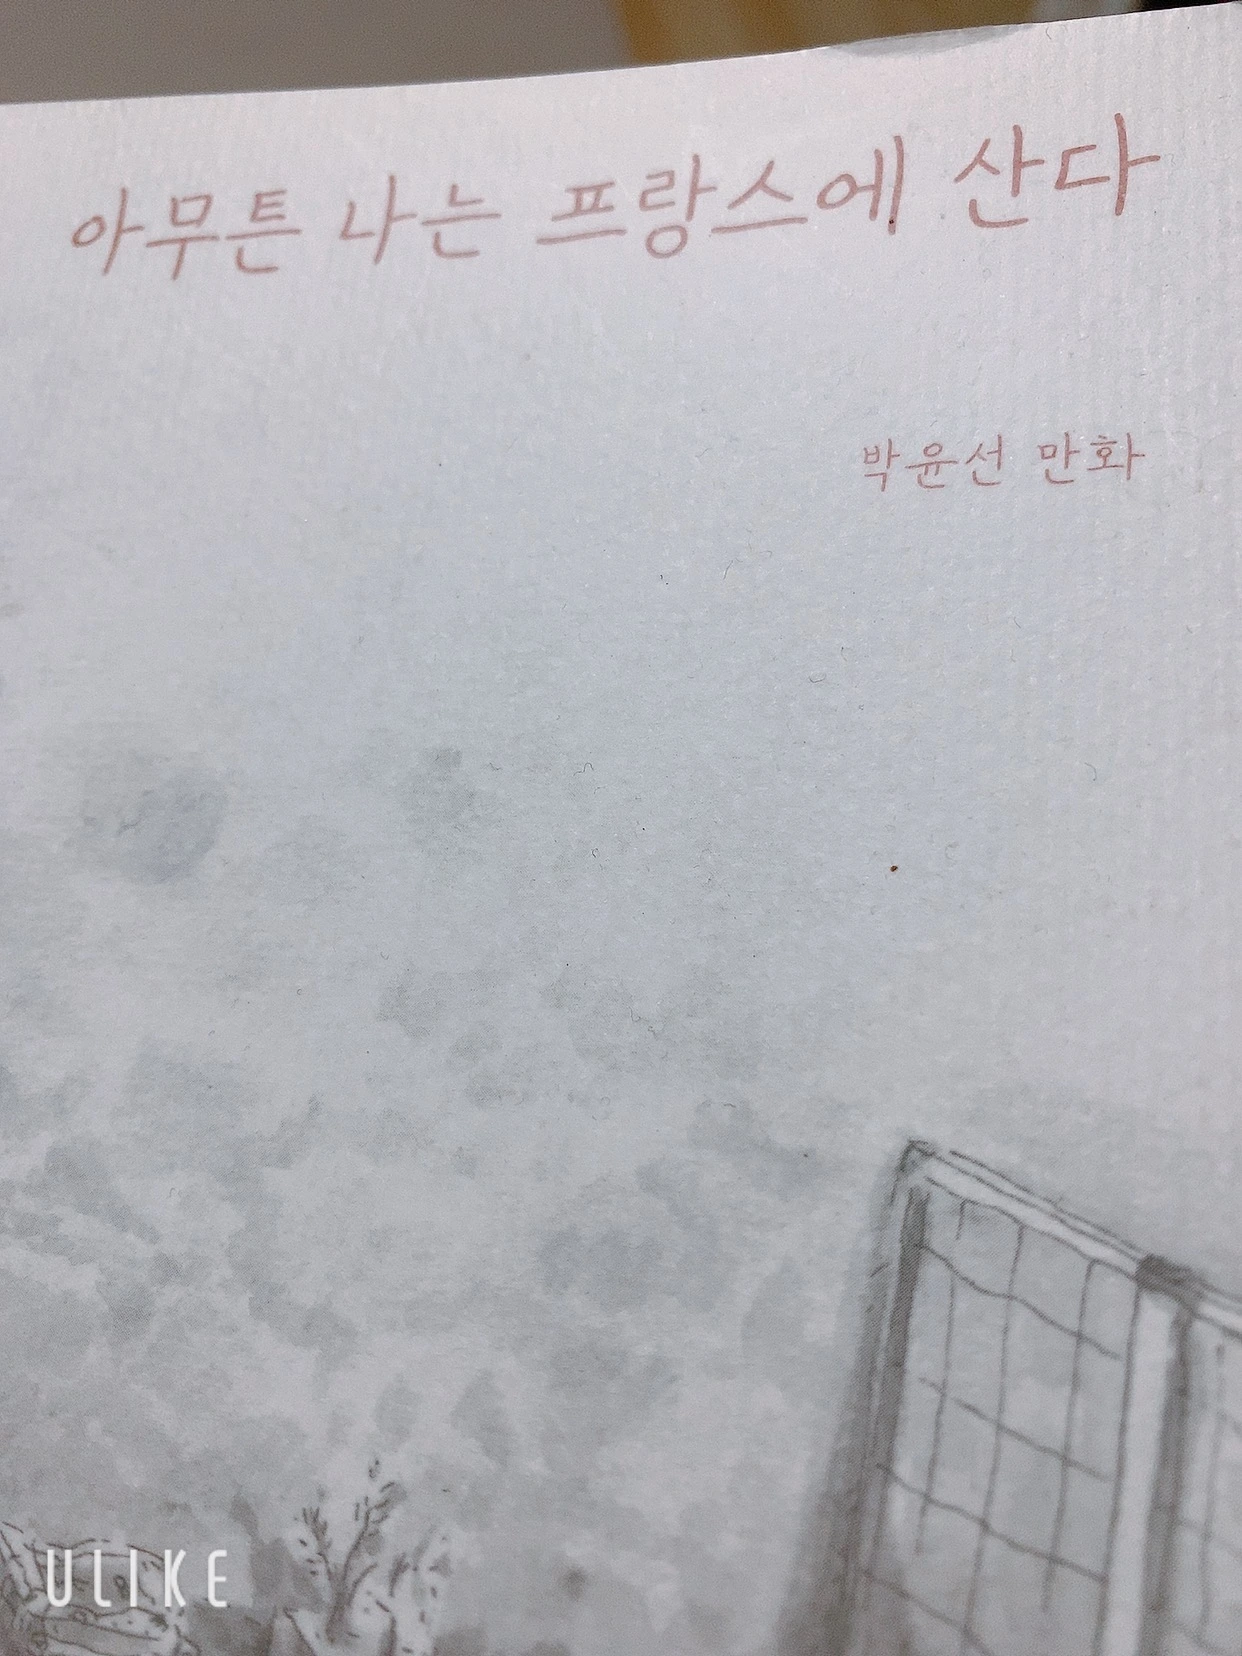 아무튼 나는 프랑스에 산다
박윤선 만화
ULIKE